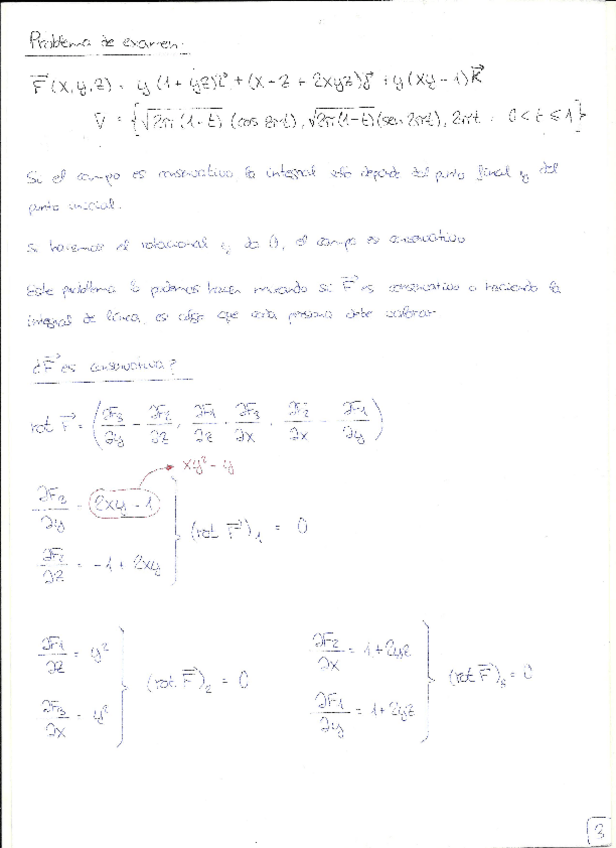 Problema de examen:
F⃗(x,y,z) = y(1+yz)i⃗ + (x-z+2xyz)j⃗ + y(xy-1)k⃗
γ = {√2π(1-t)(cos 2πt), √2π(1-t)(sen 2πt), 2πt : 0<t≤1}
Si el campo es conservativo la integral solo depende del punto final y del
punto inicial.
Si hacemos el rotacional y da 0, el campo es conservativo
Este problema lo podemos hacer mirando si F⃗ es conservativo o haciendo la
integral de línea, es algo que cada persona debe valorar
¿F⃗ es conservativa?
rot F⃗ = (∂F3/∂y - ∂F2/∂z, ∂F1/∂z - ∂F3/∂x, ∂F2/∂x - ∂F1/∂y)
xy² - y
∂F3/∂y = 2xy - 1
(rot F⃗)1 = 0
∂F2/∂z = -1 + 2xy
∂F1/∂z = y²
(rot F⃗)2 = 0
∂F3/∂x = y²
∂F2/∂x = 1+2yz
(rot F⃗)3 = 0
∂F1/∂y = 1+2yz
3